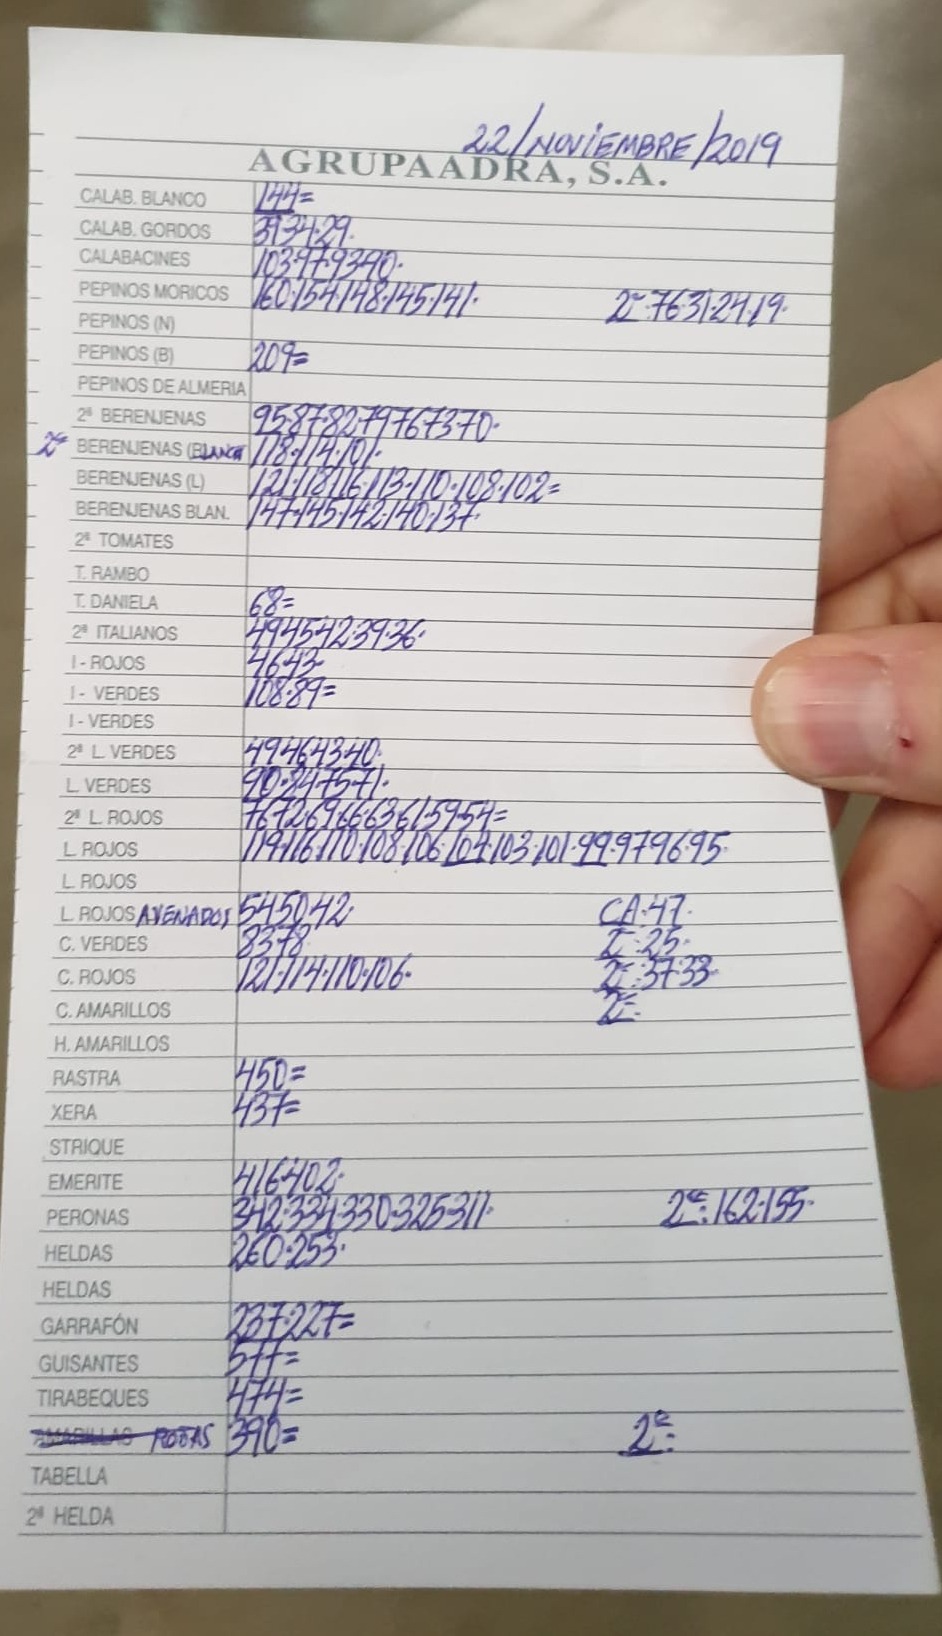 22/NOVIEMBRE/2019
AGRUPAADRA, S.A.
CALAB. BLANCO 144=
CALAB. GORDOS 39·34·29·
CALABACINES 103·97·93·90·
PEPINOS MORICOS 160·154·148·145·141· 2ª:76·31·24·19·
PEPINOS (N)
PEPINOS (B) 209=
PEPINOS DE ALMERIA
2ª BERENJENAS 95·87·82·79·76·73·70·
2ª BERENJENAS (BLANCA 118·114·101·
BERENJENAS (L) 121·118·116·113·110·108·102=
BERENJENAS BLAN. 147·145·142·140·137·
2ª TOMATES
T. RAMBO
T. DANIELA 68=
2ª ITALIANOS 49·45·42·39·36·
I - ROJOS 46·43·
I - VERDES 108·89=
I - VERDES
2ª L. VERDES 49·46·43·40·
L. VERDES 90·84·75·71·
2ª L. ROJOS 76·72·69·66·63·61·59·54=
L. ROJOS 119·116·110·108·106·104·103·101·99·97·96·95·
L. ROJOS
L. ROJOS AVENADOS 54·50·42· CA·47·
C. VERDES 83·78· 2ª:25·
C. ROJOS 121·114·110·106· 2ª:37·33·
C. AMARILLOS 2ª:
H. AMARILLOS
RASTRA 450=
XERA 437=
STRIQUE
EMERITE 416·402·
PERONAS 342·334·330·325·311· 2ª:162·155·
HELDAS 260·253·
HELDAS
GARRAFÓN 237·227=
GUISANTES 577=
TIRABEQUES 474=
AMARILLAS ROJAS 390= 2ª:
TABELLA
2ª HELDA